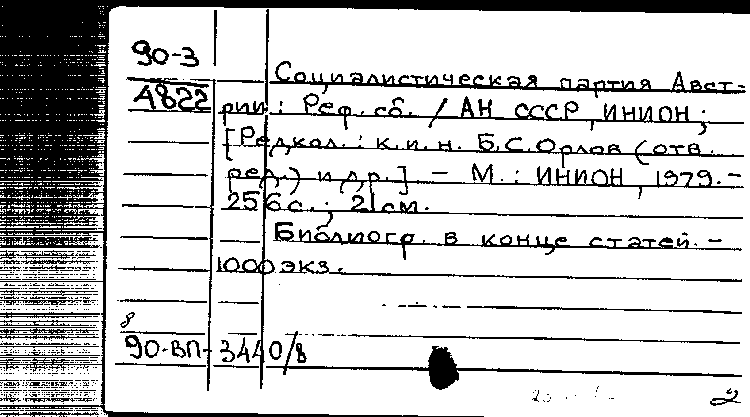 90-3
4822
Социалистическая партия Авст=
рии: Реф. сб. / АН СССР, ИНИОН;
[Редкол.: к.и.н. Б.С. Орлов (отв.
ред.) и др.]. – М.: ИНИОН, 1979. –
256 с.; 21 см.
Библиогр. в конце статей. –
1000 экз.
8
90-ВП-3440/8
2